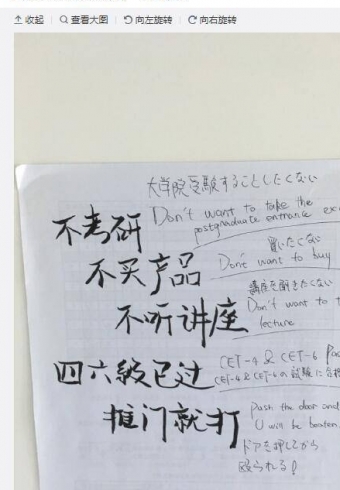 收起 查看大图 向左旋转 向右旋转
大学院受験することしたくない
不考研 Don't want to take the
postgraduate entrance exa
買いたくない
不买产品 Don't want to buy
講座を聞きたくない
不听讲座 Don't want to t
lecture
四六级已过 CET-4 & CET-6 Pa
CET-4 & CET-6の試験に合格
推门就打 Push the door and
U will be beaten.
ドアを押してから
殴られる!